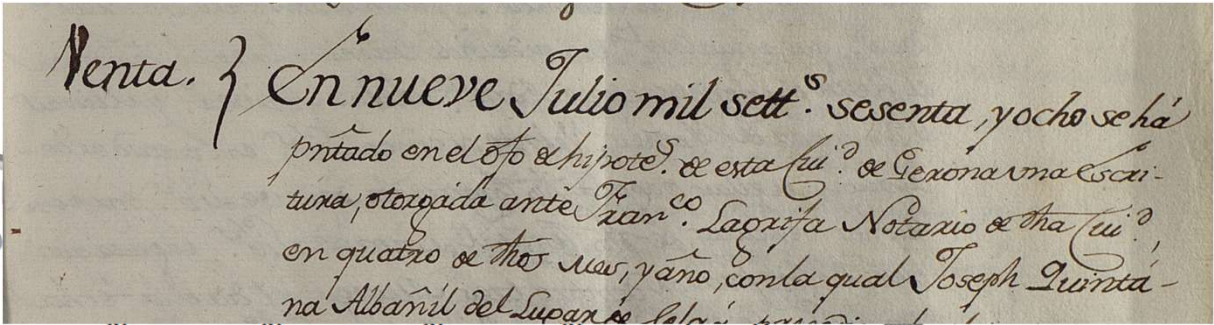 Venta. } En nueve Julio mil sett.s sesenta, y ocho se há
pñtado en el ofo de hipote.s de esta Ciu.d de Gerona una Escri-
tura, otorgada ante Fran.co Lagrifa Notario de dha Ciu.d,
en quatro de dhos mes, y año, con la qual Joseph Quintá-
na Albañil del Lugar de Celrá